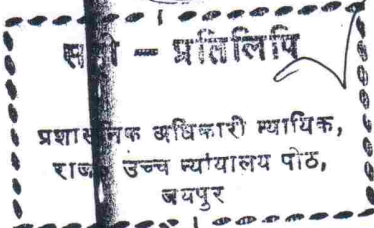 सही – प्रतिलिपि
प्रशासनिक अधिकारी न्यायिक,
राज. उच्च न्यायालय पीठ,
जयपुर